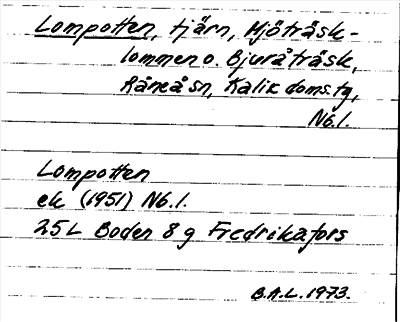 Lompotten, tjärn, Mjöträsk-
lommen o. Bjuråträsk,
Råneå sn, Kalix doms.tg,
Nb.l.
Lompotten
ek (1951) Nb.l.
25L Boden 8g Fredrikafors
B.A.L. 1973.